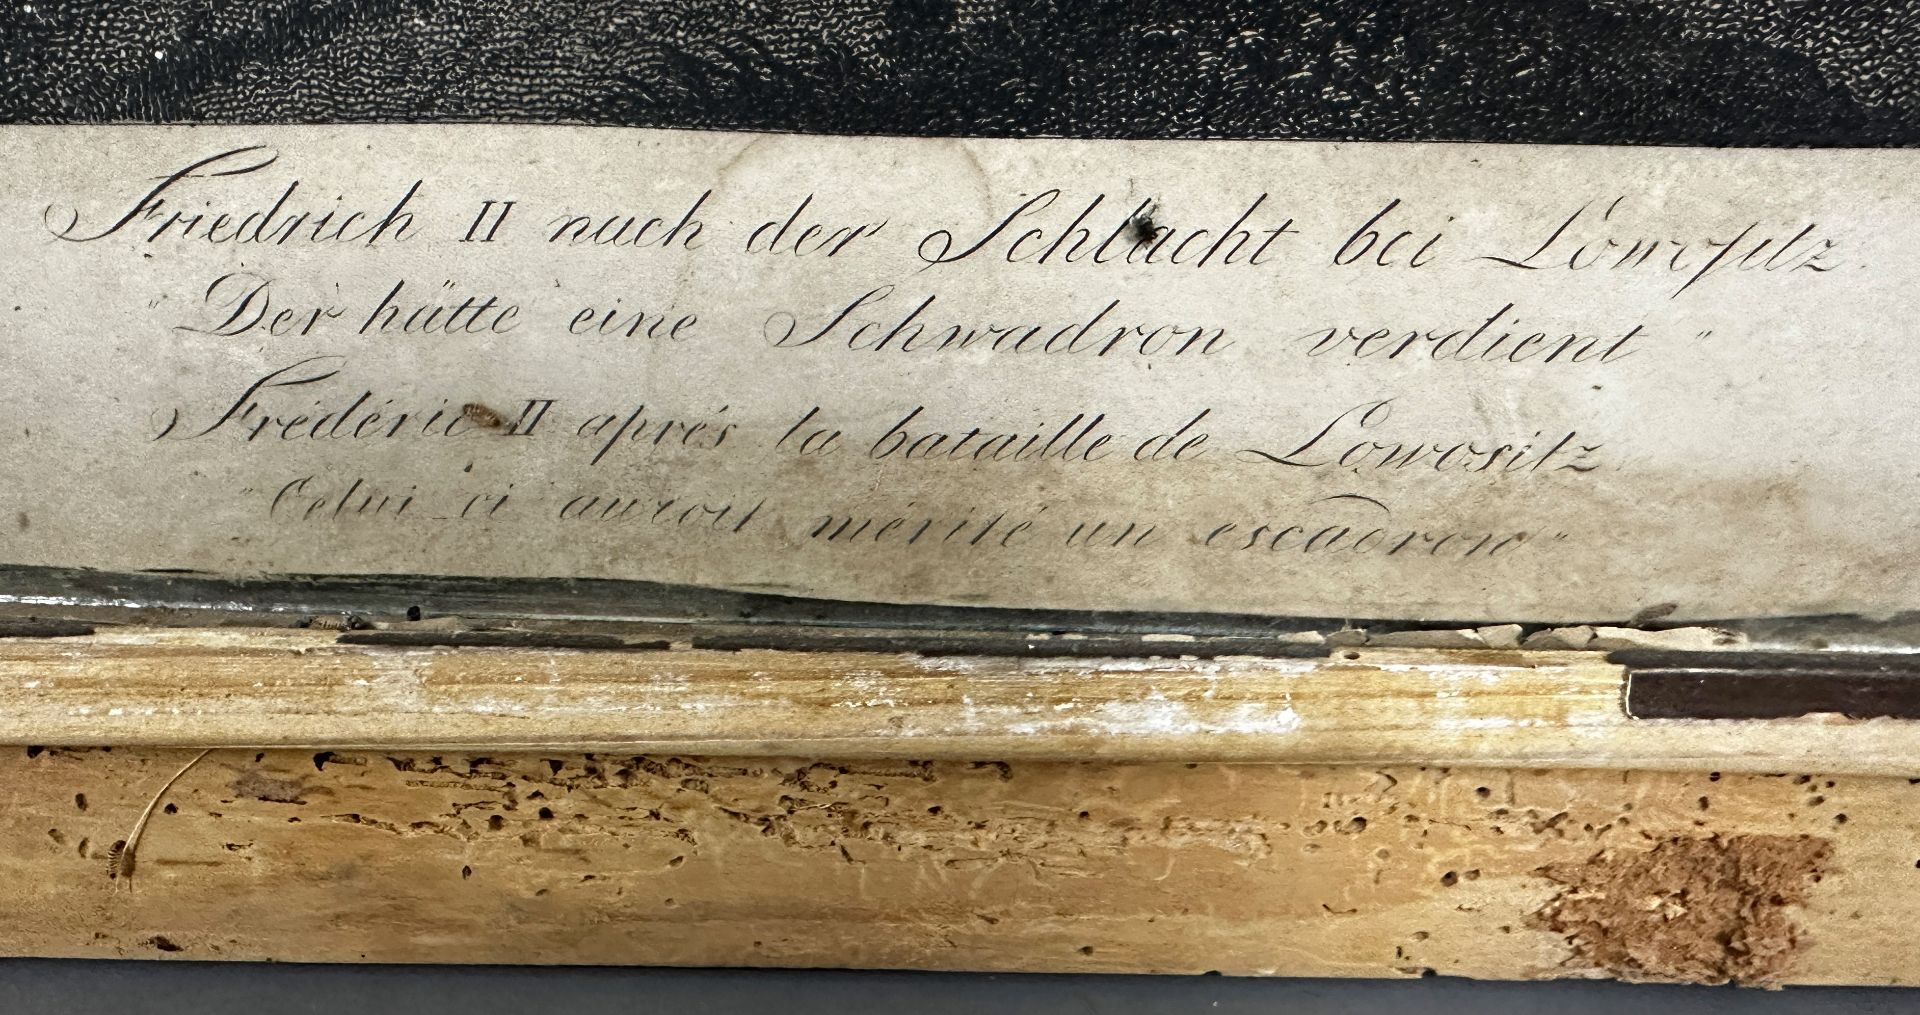 Friedrich II nach der Schlacht bei Lowositz.
"Der hätte eine Schwadron verdient"
Frédéric II aprés la bataille de Lowositz
"Celui_ci auroit mérité un escadron"